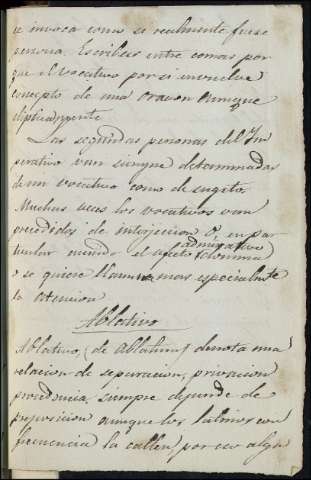 se invoca como se realmente fuese
persona. Escribese entre comas por
que el vocativo por si envuelve
concepto de una oracion aunque
elipticamente
Las segundas personas del Im
perativo van siempre determinadas
de un vocativo como de sugeto.
Muchas veces los vocativos van
precedidos de interjeccion O, en par
ticular cuando el afecto (admirativo
o se quiere llamar mas especialmte
la atencion
Ablativo
Ablativo, (de Ablatum) denota una
relacion de separacion, privacion
procedencia, siempre depende de
preposicion aunque los latinos con
frecuencia la callen, por eso algu